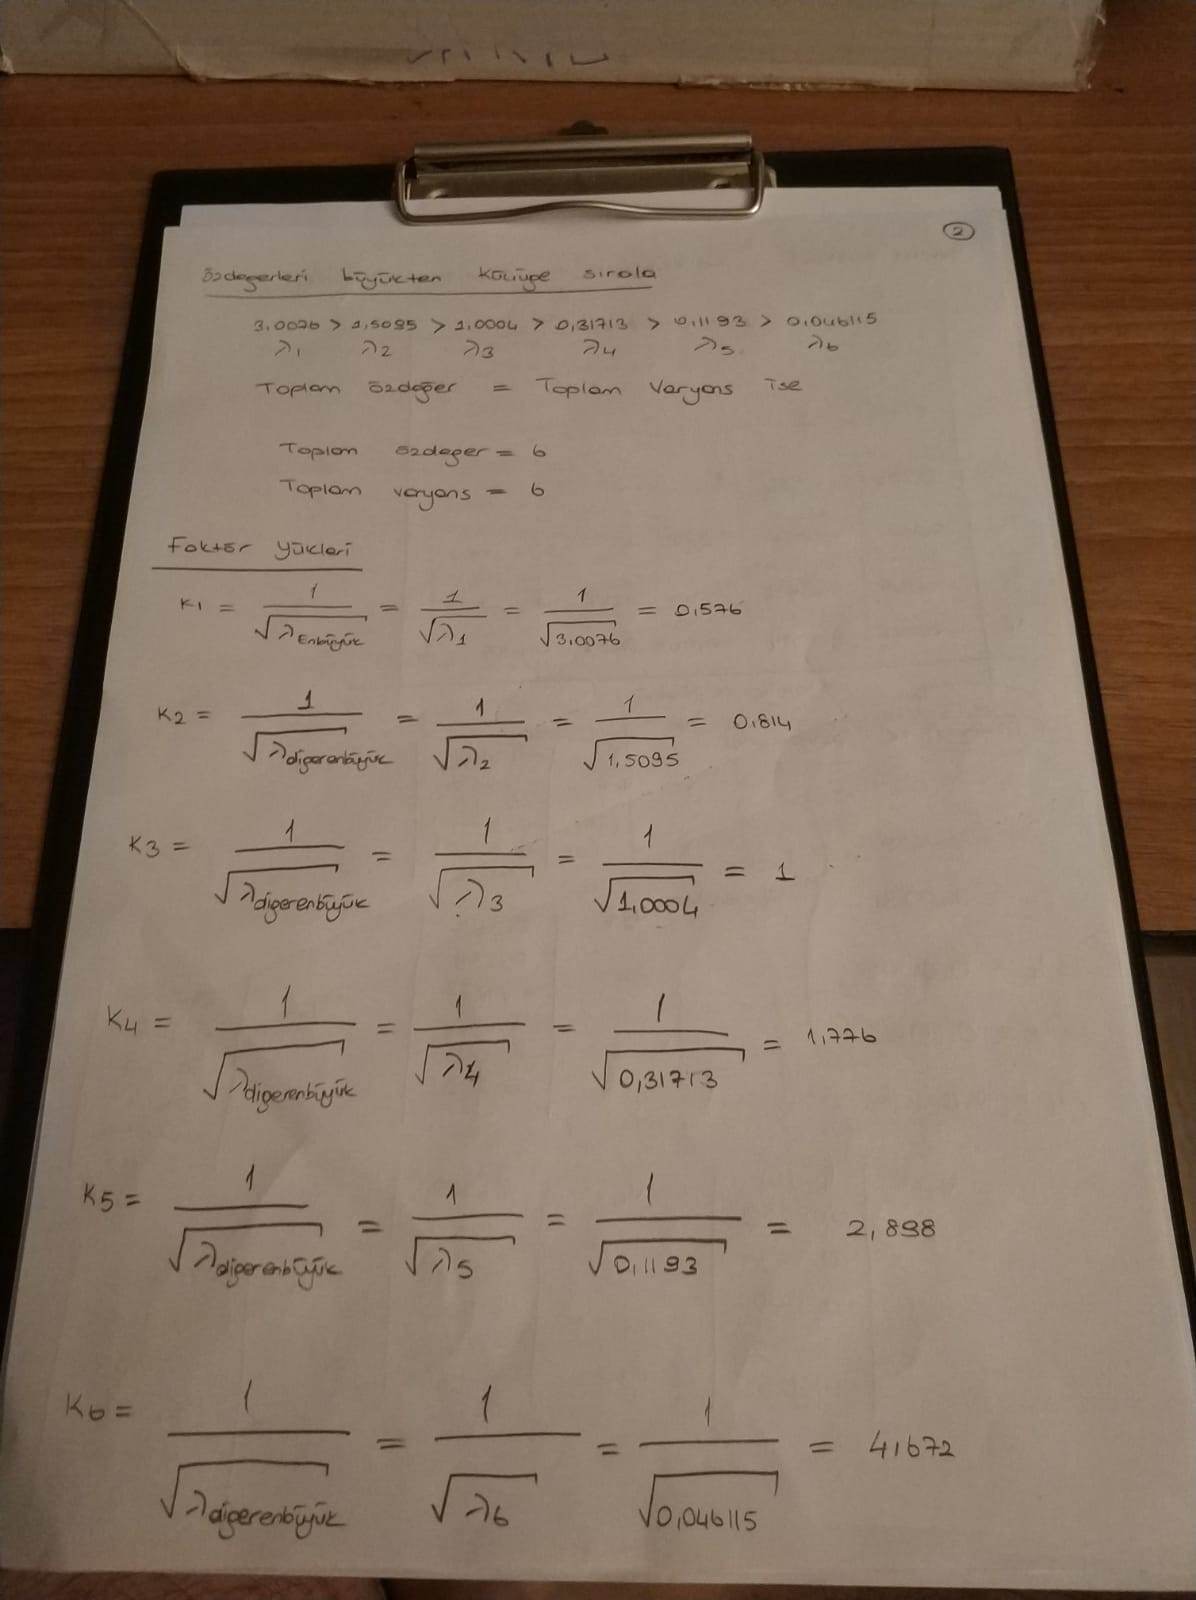 2
özdegerleri büyükten küçüğe sırala
3,0076 > 1,5095 > 1,0004 > 0,31713 > 0,1193 > 0,046115
λ1 λ2 λ3 λ4 λ5 λ6
Toplam özdeğer = Toplam Varyans ise
Toplam özdeger = 6
Toplam varyans = 6
Faktör yükleri
K1 = 1/√λEnbüyük = 1/√λ1 = 1/√3,0076 = 0,576
K2 = 1/√λdigerenbüyük = 1/√λ2 = 1/√1,5095 = 0,814
K3 = 1/√λdigerenbüyük = 1/√λ3 = 1/√1,0004 = 1
K4 = 1/√λdigerenbüyük = 1/√λ4 = 1/√0,31713 = 1,776
K5 = 1/√λdigerenbüyük = 1/√λ5 = 1/√0,1193 = 2,898
K6 = 1/√λdigerenbüyük = 1/√λ6 = 1/√0,046115 = 4,672